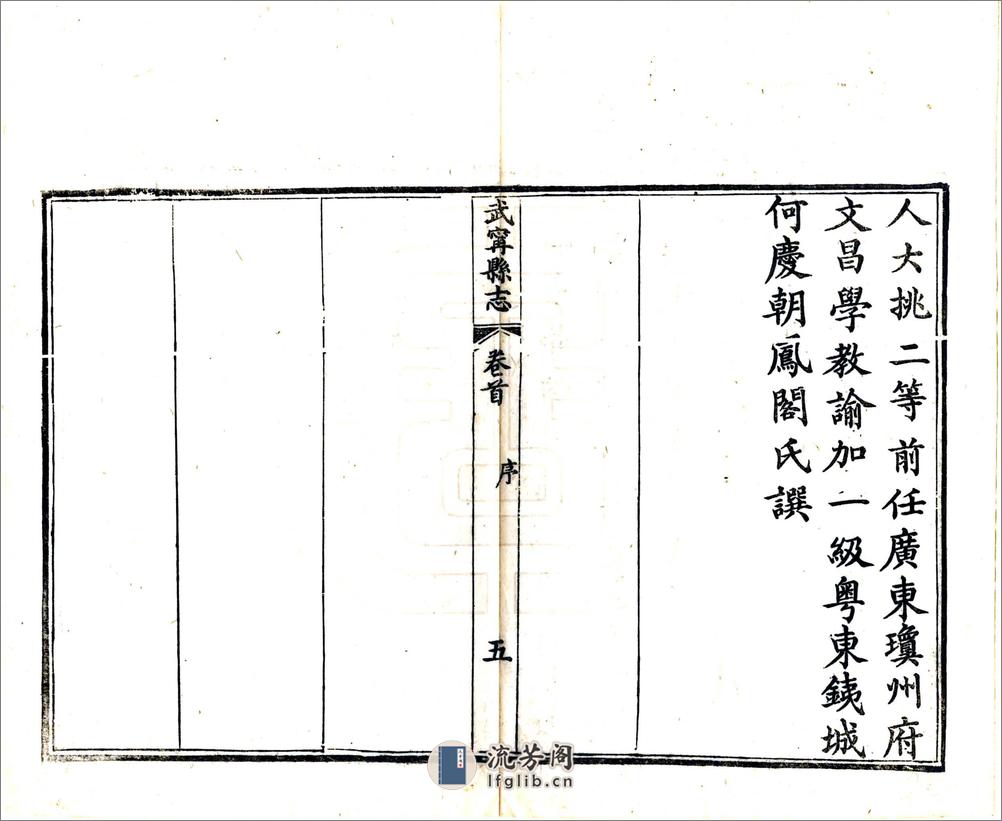 人大挑二等前任廣東瓊州府
文昌學教諭加一級粵東銕城
何慶朝鳳閣氏譔
武寧縣志
卷首
序
五
流芳阁
lfglib.cn